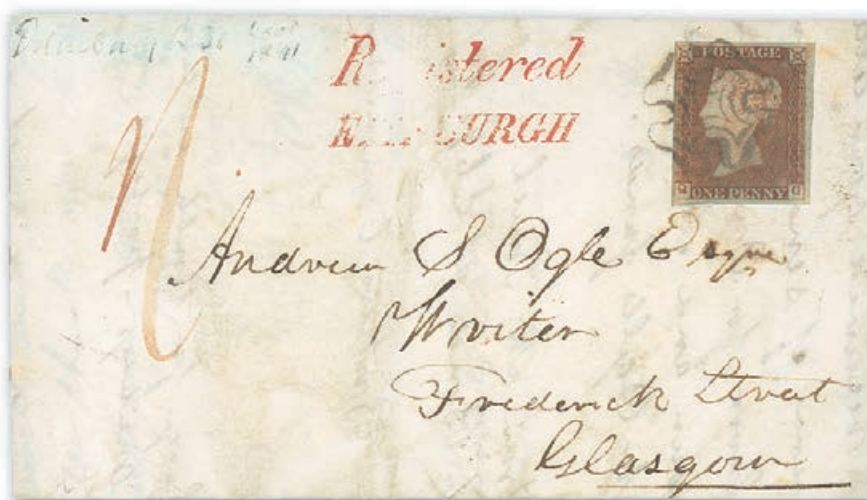 Edinburgh 31
1841
Registered
EDINBURGH
POSTAGE
ONE PENNY
Andrew S Ogle Esqre
Writer
Frederick Street
Glasgow